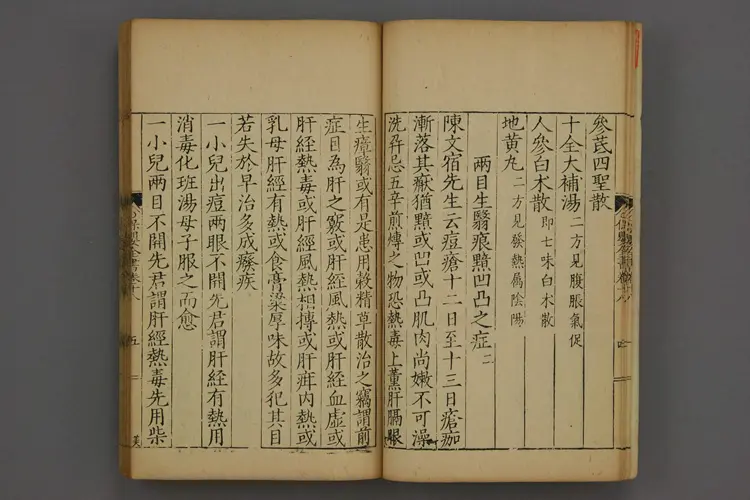 參芪四聖散
十全大補湯 二方見腹脹氣促
人參白朮散 即七味白朮散
地黃丸 二方見發熱屬陰陽
兩目生翳痕黯凹凸之症 二
陳文宿先生云痘瘡十二日至十三日瘡痂
漸落其瘢猶黯或凹或凸肌肉尚嫩不可澡
洗并忌五辛煎煿之物恐熱毒上薰肝膈眼
生瘴翳或有是患用穀精草散治之竊謂前
症目為肝之竅或肝經風熱或肝經血虛或
肝經熱毒或肝經風熱相搏或肝疳內熱或
乳母肝經有熱或食膏粱厚味故多犯其目
若失於早治多成癈疾
一小兒出痘兩眼不開先君謂肝經有熱用
消毒化斑湯母子服之而愈
一小兒兩目不開先君謂肝經熱毒先用柴
保嬰全書卷十八
五